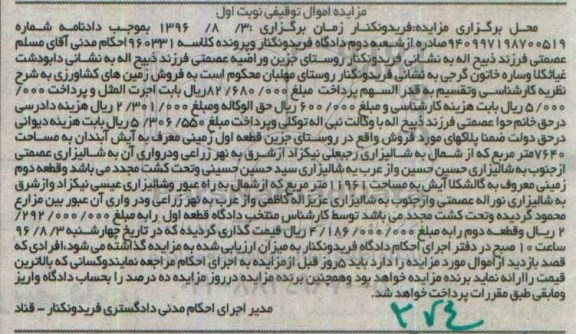 مزایده اموال توقیفی نوبت اول
محل برگزاری مزایده:فریدونکنار زمان برگزاری :۳/ ۸/ ۱۳۹۶ بموجب دادنامه شماره
۹۴۰۹۹۷۱۹۸۷۰۰۵۱۹صادره ازشعبه دوم دادگاه فریدونکنار وپرونده کلاسه ۹۶۰۳۳۱ احکام مدنی آقای مسلم
عصمتی فرزند ذبیح اله به نشانی فریدونکنار روستای جزین وراضیه عصمتی فرزند ذبیح اله به نشانی دابودشت
غیاثکلا وساره خاتون گرجی به نشانی فریدونکنار روستای مهلبان محکوم است به فروش زمین های کشاورزی به شرح
نظریه کارشناسی وتقسیم به قدر السهم پرداخت مبلغ ۸۲/۶۸۰/۰۰۰ریال بابت اجرت المثل و پرداخت ۰۰۰/
۵/۰۰۰ریال بابت هزینه کارشناسی و مبلغ ۶۰۰/۰۰۰ ریال حق الوکاله ومبلغ ۲/۳۰۱/۰۰۰ ریال هزینه دادرسی
درحق خانم حوا عصمتی فرزند ذبیح اله با وکالت نبی اله توکلی وپرداخت مبلغ ۵/۳۰۶/۵۵۰ ریال بابت هزینه دیوانی
درحق دولت ضمنا پلاکهای مورد فروش واقع در روستای جزین قطعه اول زمینی معرف به آیش آبندان به مساحت
۷۶۴۰متر مربع که از شمال به شالیزاری رجبعلی نیکزاد ازشرق به نهر زراعی ودرواری آن به شالیزاری عصمتی
ازجنوب به شالیزاری حسین حسین واز عرب به شالیزاری سید حسین حسینی وتحت کشت مجدد می باشد وقطعه دوم
زمینی معروف به گالشکلا آیش به مساحت ۱۱۹۶۱ متر مربع که ازشمال به راه عبور وشالیزاری عیسی نیکزاد وازشرق
به شالیزاری نوراله عصمتی وازجنوب به شالیزاری عزیزاله کاظمی واز عرب به نهر زراعی ودر واری آن عبور بین مزارع
محمود گردیده وتحت کشت مجدد می باشد توسط کارشناس منتخب دادگاه قطعه اول رابه مبلغ ۲۹۲/۰۰۰/۰۰۰/
۲ ریال وقطعه دوم رابه مبلغ ۴/۱۸۶/۰۰۰/۰۰۰ ریال قیمت گذاری گردیده که در تاریخ چهارشنبه ۹۶/۸/۳
ساعت ۱۰ صبح در دفتر اجرای احکام دادگاه فریدونکنار به میزان ارزیابی شده به مزایده گذاشته می شود،افرادی که
قصد بازدید ازاموال مورد مزایده را دارد باید ۵روز قبل ازمزایده به اجرای احکام مراجعه نمایندوکسانی که بالاترین
قیمت را ارائه نماید برنده مزایده خواهد بود وهمچنین برنده مزایده درروز مزایده ده درصد را بحساب دادگاه واریز
ومابقی طبق مقررات پرداخت خواهد شد.
مدیر اجرای احکام مدنی دادگستری فریدونکنار - قناد
۲۷۴